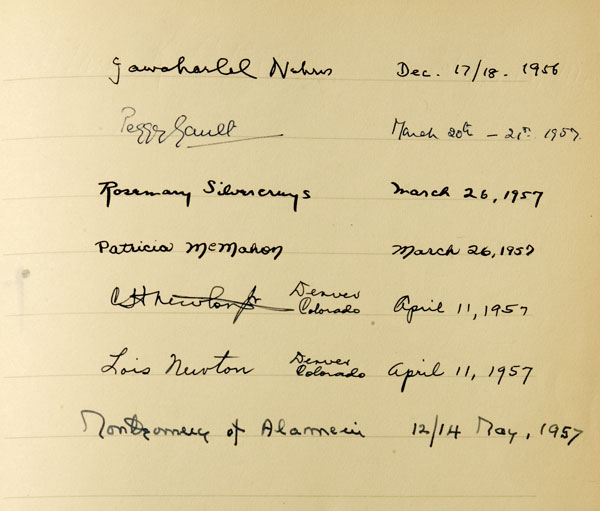 Jawaharlal Nehru Dec. 17/18. 1956
Peggy Gault March 20th – 21st. 1957.
Rosemary Silvercruys March 26, 1957
Patricia McMahon March 26, 1957
CH Newton Jr Denver Colorado April 11, 1957
Lois Newton Denver Colorado April 11, 1957
Montgomery of Alamein 12/14 May, 1957